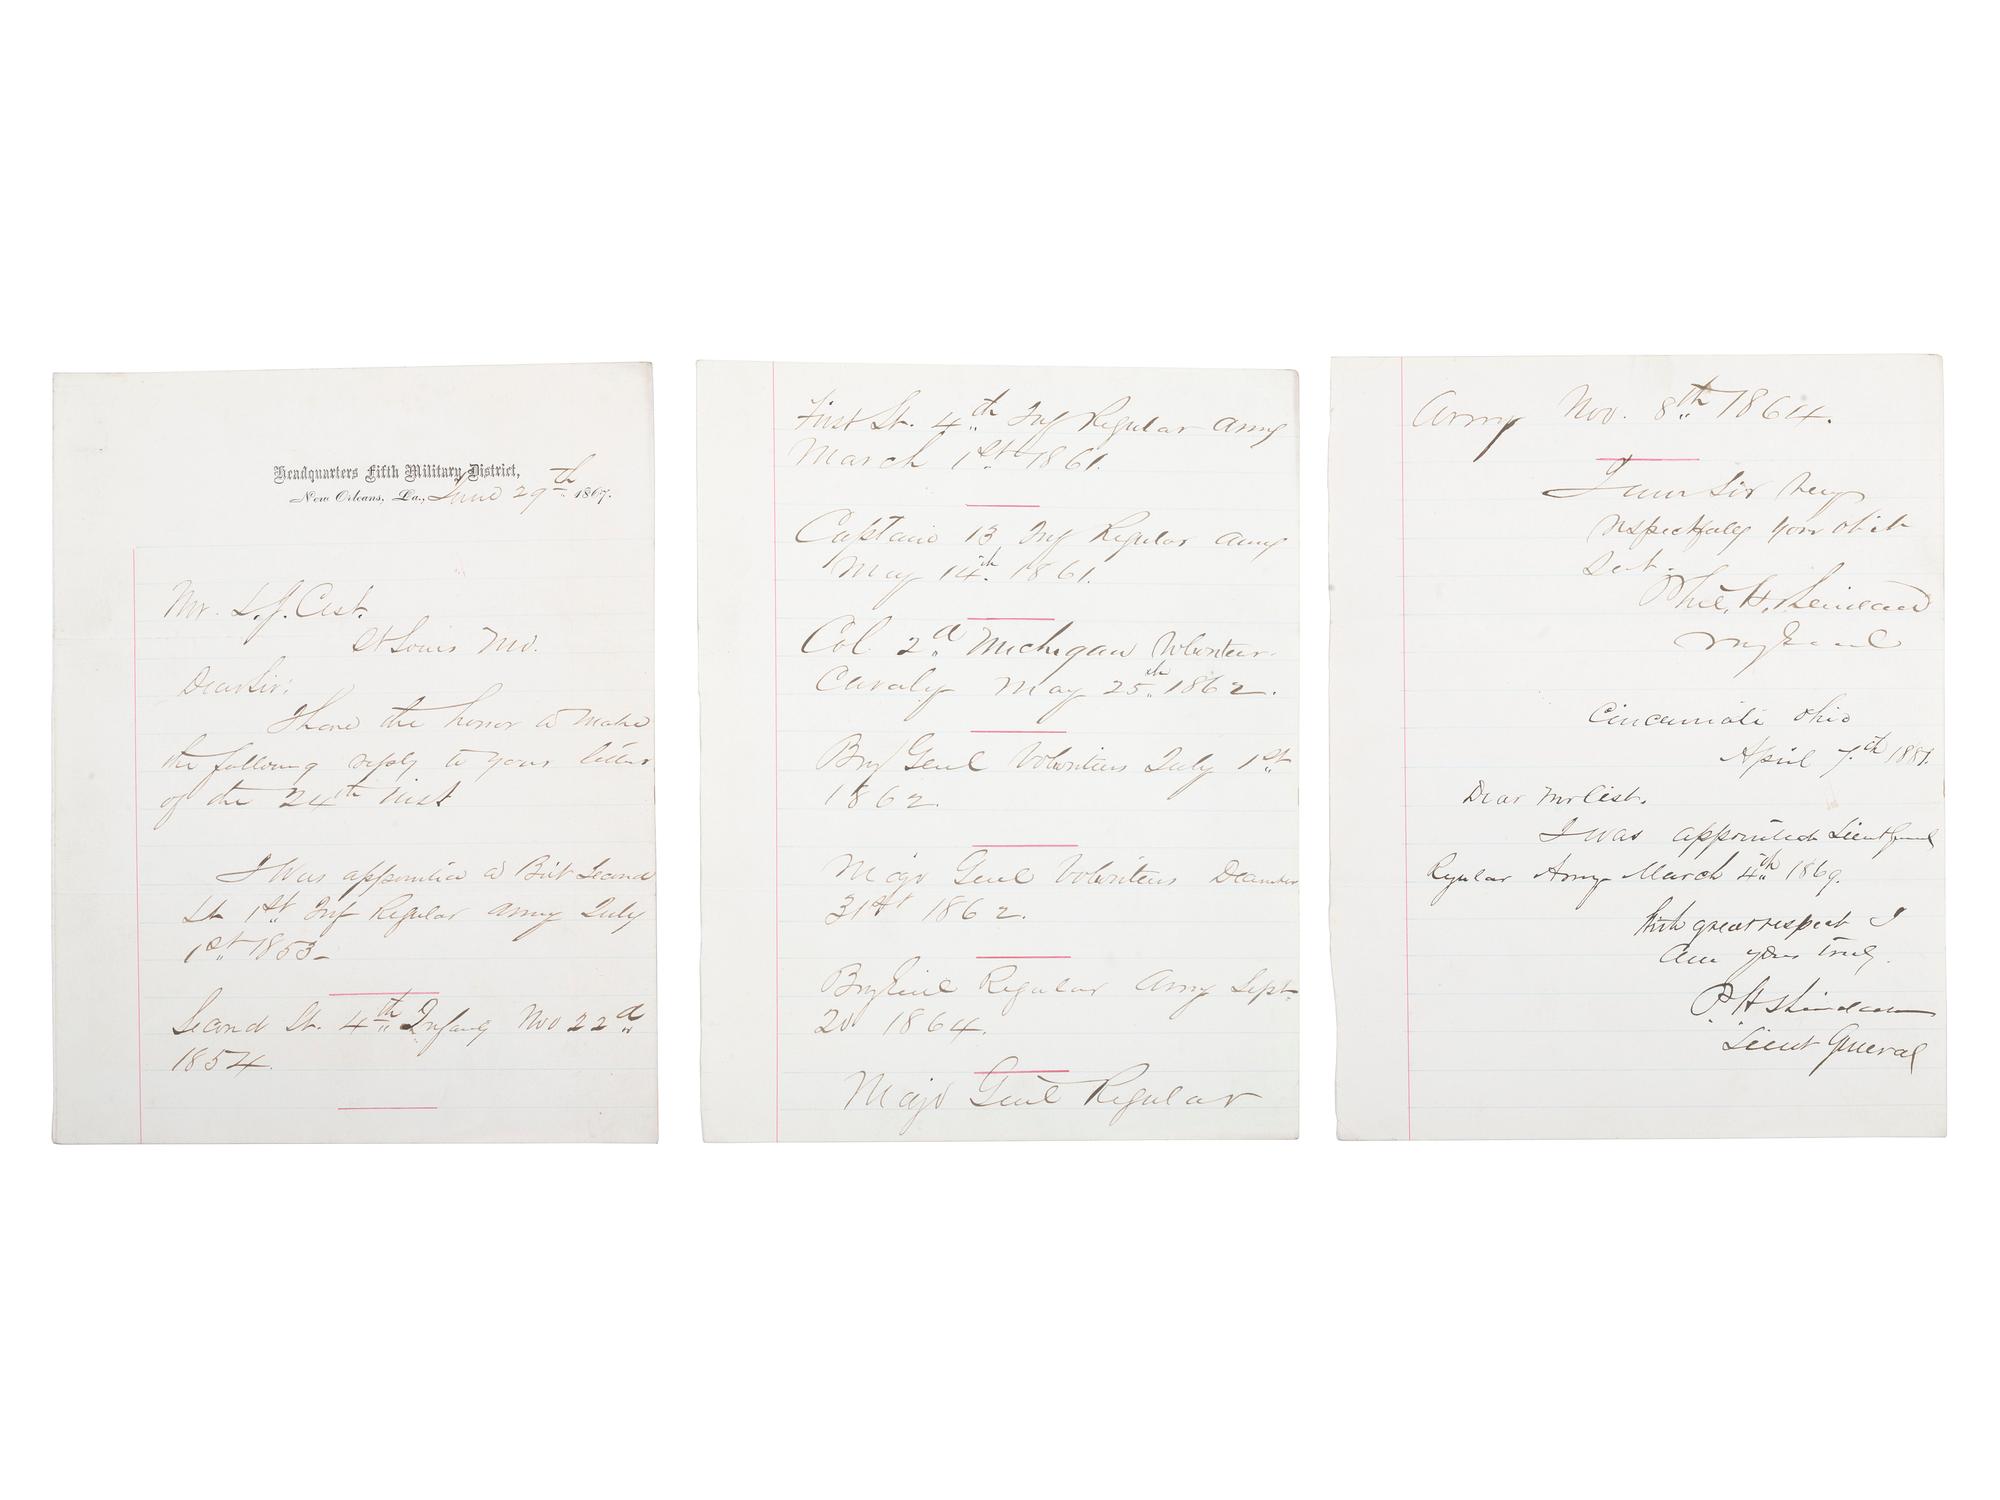 Headquarters Fifth Military District,
New Orleans, La., June 29th 1867.
Mr. L. J. Cist.
St Louis Mo.
Dear Sir:
I have the honor to make
the following reply to your letter
of the 24th inst
I was appointed a Bvt Second
Lt 1st Inf Regular Army July
1st 1853-
Second Lt. 4th Infanty Nov 22d
1854.
First Lt. 4th Inf Regular Army
March 1st 1861.
Captain 13 Inf Regular Army
May 14th 1861.
Col. 2d Michigan Volunteer
Cavalry May 25th 1862.
Brig Genl Volunteers July 1st
1862.
Major Genl Volunteers December
31st 1862.
Brig Genl Regular Army Sept.
20 1864.
Major Genl Regular
Army Nov. 8th 1864.
I am Sir Very
respectfully your obt
Svt.
Phil. H. Sheridan
Maj Genl
Cincinnati Ohio
April 7th 1881.
Dear Mr Cist.
I was appointed Lieut Genl
Regular Army March 4th 1869.
With great respect I
am yours truly.
P. H. Sheridan
Lieut General